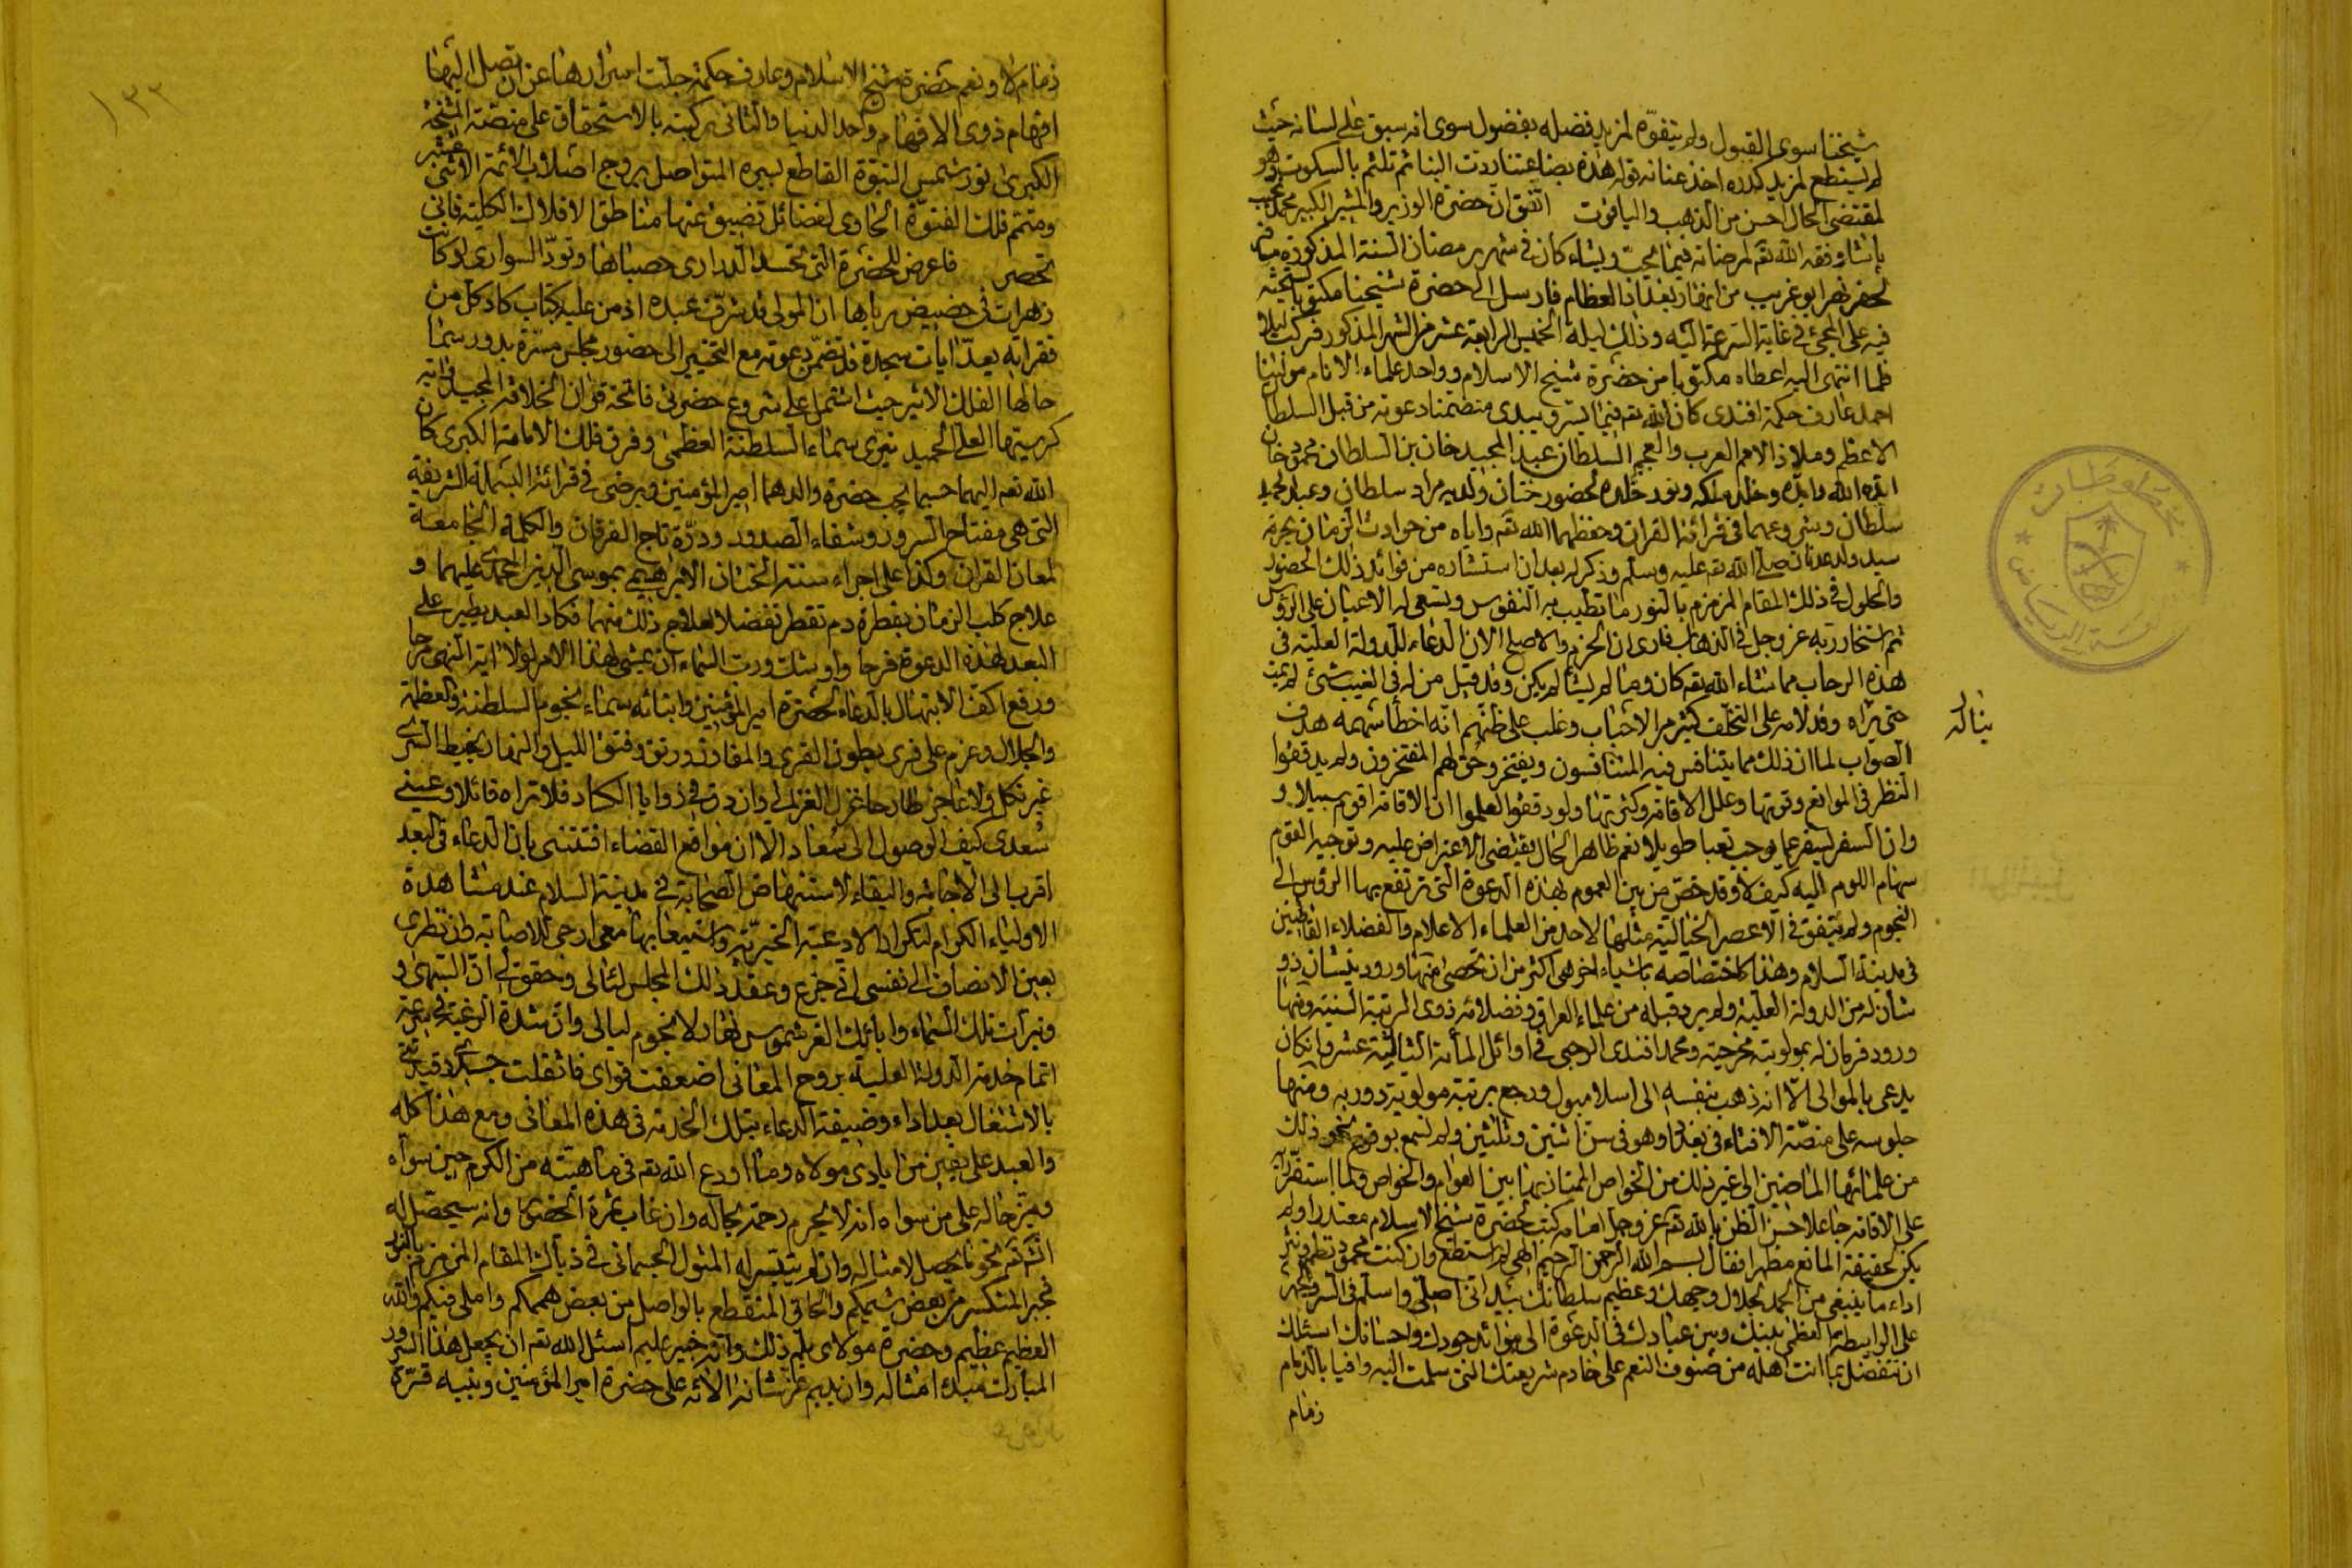 شيخنا سوى القبول ولم يتفوّه لمزيد فضله بفضول سوى انه سبق على لسانه حيث
لم يستطع لمزيد كدره اخذ عنانه قوله هذه بضاعتنا ردت الينا ثم تلثم بالسكوت وهو
لمقتضى الحال احسن من الذهب والياقوت اتفق ان حضرة الوزير والمشير الكبير محمد نجيب
باشا وفقه الله تعم لمرضاته فيما يحب ويشاء كان في شهر رمضان السنة المذكورة
لحفر نهر ابو غريب من انهار بغداد العظام فارسل الى حضرة شيخنا مكتوبا يستحثه
فيه على المجئ في غاية السرعة اليه وذلك ليلة الخميس الرابعة عشر من الشهر المذكور فركب ليلا و
فلما انتهى اليه اعطاه مكتوبا من حضرة شيخ الاسلام وواحد علماء الانام مولينا
احمد عارف حكمة افندى كان الله تعم فيما يسر ويبدى متضمنا دعوته من قبل السلطان
الاعظم وملاذ الامم العرب والعجم السلطان عبد المجيد خان بن السلطان محمود خان
ايده الله وابّده وخلد ملكه وخلده لحضور ختان ولديه مراد سلطان وعبد الحميد
سلطان وشروعهما في قرائة القران وحفظهما الله تعم واياه من حوادث الزمان بحرمة
سيد ولد عدنان صلى الله تعم عليه وسلم وذكر له بعد ان استشاره من فوائد ذلك الحضور
والحلول في ذلك المقام المزمزم بالنور ما تطيب به النفوس ويسعى له الاعيان على الرؤس
ثم استخار ربه عز وجل في الذهاب فارى ان الحزم والاصلح الان الدعاء للدولة العلية في
هذه الرحاب مما شاء الله تعم كان وما لم يشأ لم يكن وقد قيل من له في الغيب شئ لم يمت
حتى يراه وقد لامه على التخلف كثير من الاحباب وغلب على ظنهم انه اخطأ سهمه هدف
الصواب لما ان ذلك مما يتنافس فيه المتنافسون ويفتخر وحق لهم المفتخرون ولم يدققوا
النظر في الموانع وقوتها وعلل الاقامة وكثرتها ولو دققوا لعلموا ان الاقامة اقوم سبيلا و
وان السفر ليسفر عما يوجب تعبا طويلا نعم ظاهر الحال يقتضى الاعتراض عليه وتوجيه القوم
سهام اللوم اليه كيف لا وقد خصّ من بين العموم بهذه الدعوة التى ترتفع بها الرؤس الى
النجوم ولم يتفق في الاعصر الخالية مثلها لاحد من العلماء الاعلام والفضلاء القاطنين
في مدينة السلام وهذا كاختصاصه باشياء اخر هى اكثر من ان تحصى منها ورود نيشان ذو
شأن له من الدولة العلية ولم يرد قبله من علماء العراق وفضلائه ذوى المرتبة السنية ومنها
ورود فرمان له بمولوية مخرجية ومحمد افندى الرحبى في اوائل المأية الثالثة عشر وان كان
يدعى بالموالى الا انه ذهب بنفسه الى اسلامبول ورجع برتبة مولوية دوريه ومنها
جلوسه على منصّة الافتاء في بغداد وهو في سن اثنين وثلثين ولم نسمع بوقوع نحو ذلك
من علمائها الماضين الى غير ذلك من الخواص الممتاز بها بين العوام والخواص ولما استقرّ رأيه
على الاقامة جاعلا حسن الظن بالله تعم عز وجل امامه كتب لحضرة شيخ الاسلام معتذرا ولم
يكن لحقيقة المانع مظهرا فقال بسم الله الرحمن الرحيم الهى لم استطع وان كنت محمود نظم ونثر
اداء ما ينبغى من الحمد لجلال وجهك وعظيم سلطانك بيد انى اصلّى واسلم في السر والجهر
على الواسطة العظمى بينك وبين عبادك في الدعوة الى موائد جودك واحسانك اسئلك
ان تتفضل بما انت اهله من صنوف النعم على خادم شريعتك التى سلمت اليه وافيا بالذمام
زمام
زمام لا ونعم حضرة شيخ الاسلام وعارف حكمة جلت اسرارها عن ان تصل اليها
افهام ذوى الافهام واحد الدنيا والثانى ركبته بالاستحقاق على منصّة المشيخة
الكبرى نور شمس النبوّة القاطع لسيره المتواصل بروج اصلاب الائمة الاثنى عشر
ومتمم فلك الفتوّة الحاوى لفضائل تضيق عنها مناطق الافلاك الكلية فانى
تحصر فاعرض للحضرة التى تحسد الدرارى حصباها وتودّ السوارى لو كانت
زهرات في حضيض رباها ان المولى قد شرّف عبده اذ من عليه بكتاب كاد كل من
فقراته يعدّ ايات سجدة قد تضمّن دعوته مع التخيير الى حضور مجلس مسرّة يدور سما
حالها الفلك الاثير حيث اشتمل على شروع حضرتى فاتحة قران الخلافة المجيد واية
كرسيتها العلى الحميد نيرى سماء السلطنة العظمى وفرقد فلك الامامة الكبرى كان
الله تعم اليهما حسبما يحب حضرة والدهما امير المؤمنين ويرضى في قرائة البسملة الشريفة
التى هى مفتاح السرور وشفاء الصدور ودرّة تاج الفرقان والكلمة الجامعة
لمعان القران وكذا على اجراء سنة الختان الابراهيمى بموسى الدين المحمدى عليهما و
علاج كلب الزمان بقطرة دم تقطر تفضلا لعلاج ذلك منهما فكاد العبد يطير على
البعد لهذه الدعوة فرحا واوشك ورب السماء ان يمشى لهذا الامر لولا اية النهى مرحا
ورفع اكف الابتهال بالدعاء لحضرة امير المؤمنين وابنائه سماء نجوم السلطنة والعظمة
والجلال وعزم على فرى بطون القرى والمفاوز ورتق وفتق الليل والنهار بخيط السرى
غير نكل ولا عاجز طارحا غزل الغزالى وان دق في زوايا الكساد فلا تراه قائلا وعينى
سُعدى كيف الوصول الى سُعاد الا ان مواقع القضاء افتتنى بان الدعاء في البعد
اقرب الى الاجابة والبقاء لاستنهاض الصحابة في مدينة السلام عند مشاهدة
الاولياء الكرام لتكرار الادعية الخيريّة واستيعابها معى ارجى للاصابة وان نظرى
بعين الانصاف الى نفسى انى جزع وعقد ذلك المجلس لئالى وحقق لى ان السهى و
ونيرات تلك السماء وابائك الغر شموس نهار لا نجوم ليالى وان شدة الرغبة في سرعة
اتمام خدمة الدولة العلية بروح المعانى اضعفت قواى فاثقلت جسدى وقيدتنى
بالاشتغال بعد اداء وضيفة الدعاء بتلك الخدمة في هذه المغانى ومع هذا كله
والعبد على يقين من ايادى مولاه وما اودع الله تعم في ماهيته من الكرم حين سواه
وميّز حاله على من سواه انه لا يحرم رحمة بحاله وان غاب ثمرة الحضور وانه سيحصل له
انشاء تعم نحو ما يحصل لامثاله وان لم يتيسر له المثول الجسمانى في ذياك المقام المزمزم بالنور
فجبر المنكسر من بعض شيمكم والحاق المنقطع بالواصل من بعض هممكم واملى فيكم والله
العظيم عظيم وحضرة مولاى يعلم ذلك وانه خبير عليم اسئل الله تعم ان يجعل هذا السرور
المبارك مبدء امثاله وان يديم عز شانه الائه على حضرة امير المؤمنين وبنيه قرّة
١٣٣
مخطوطات